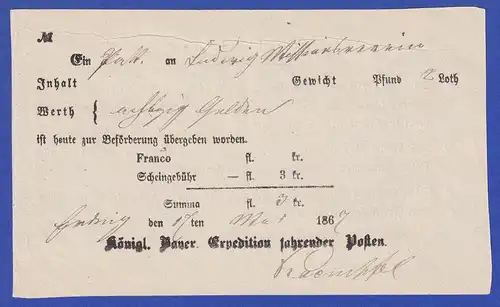 №
Ein Pak. an Ludwig Missionsverein
Inhalt Gewicht Pfund 2 Loth
Werth { achtzig Gulden
ist heute zur Beförderung übergeben worden.
Franco fl. kr.
Scheingebühr — fl. 3 kr.
Summa fl. 3 kr.
den 17ten Mai 1867
Königl. Bayer. Expedition fahrender Posten.